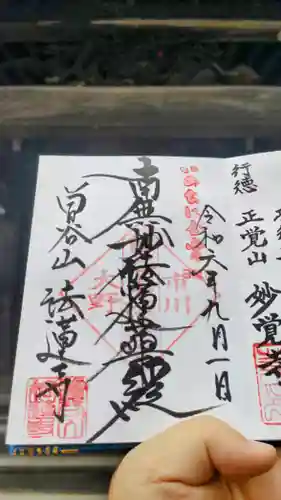 行徳
正覚山
妙覚寺
令和元年九月一日
南無妙法蓮華経
曽谷山
法蓮寺
市川
大野